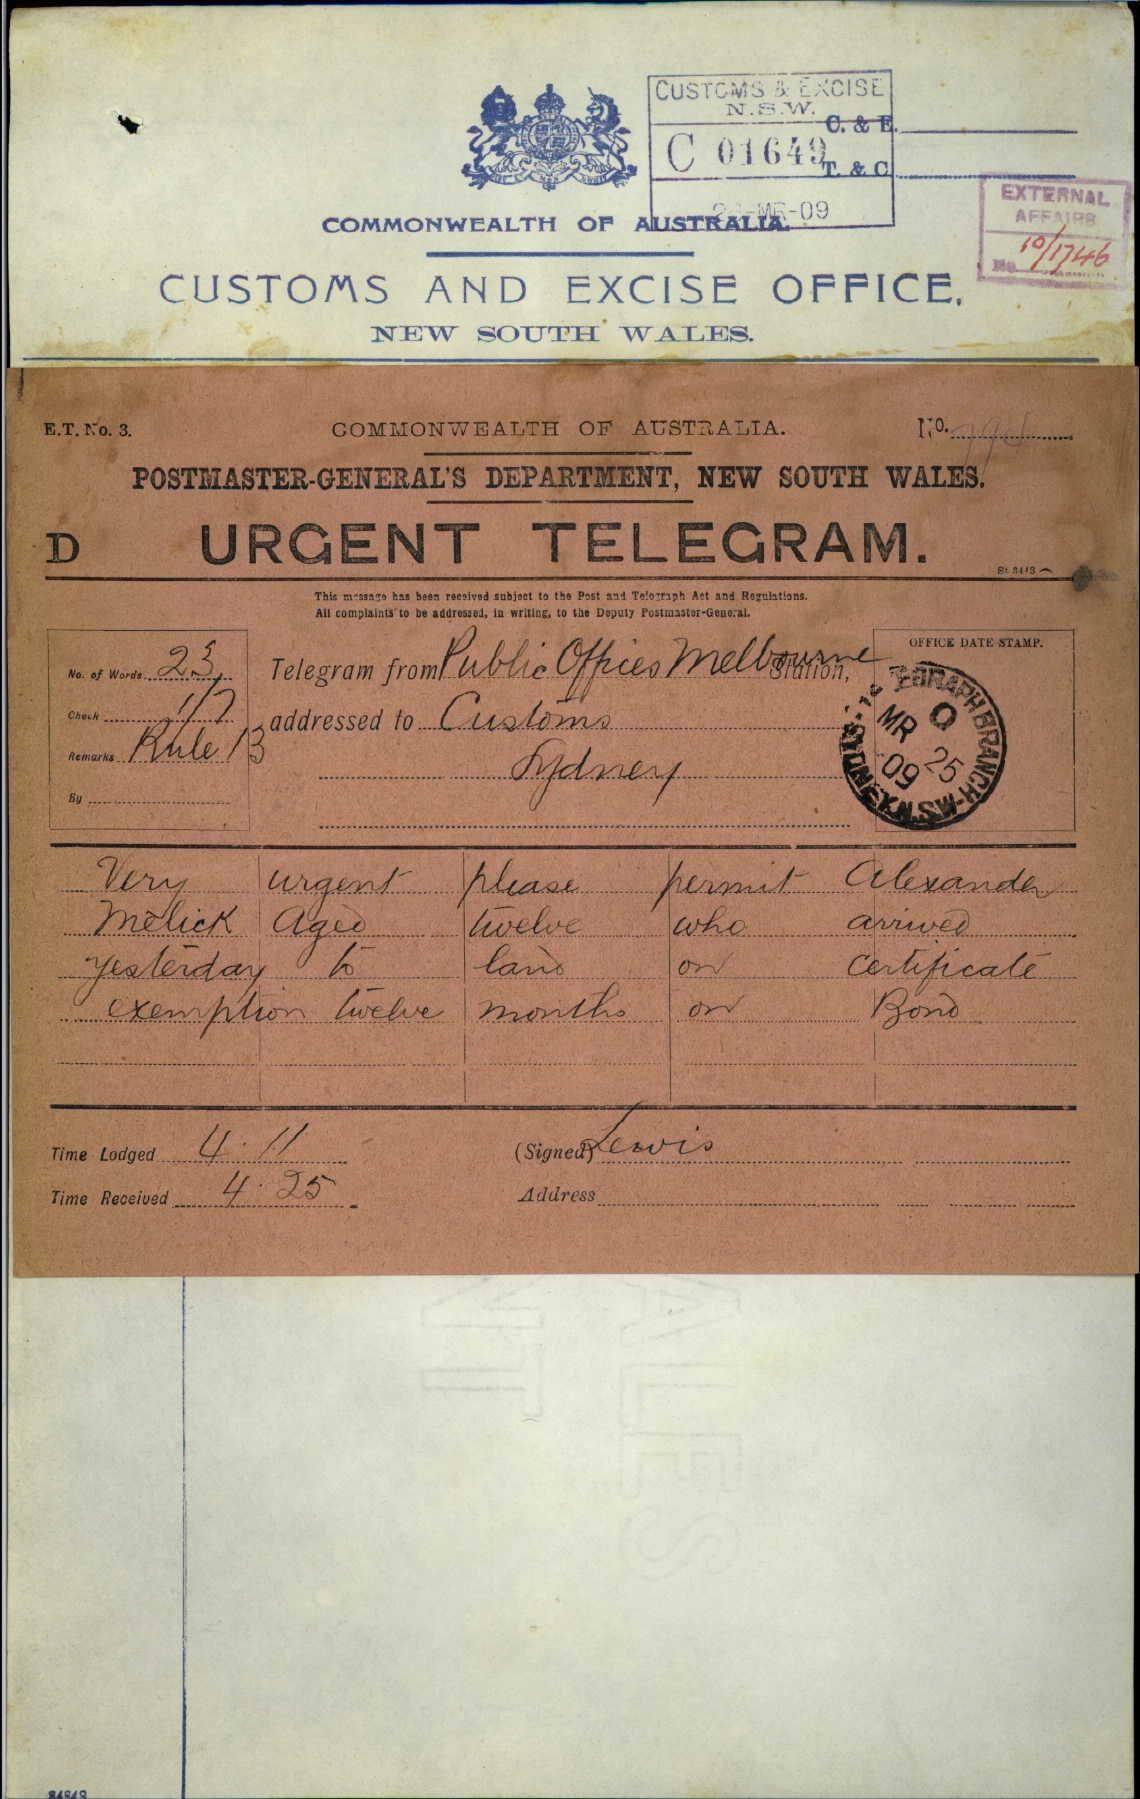 CUSTOMS & EXCISE
N.S.W.
C. & E.
C 01649
T. & C.
-MR-09
EXTERNAL
AFFAIRS
No. 10/1746
COMMONWEALTH OF AUSTRALIA.
CUSTOMS AND EXCISE OFFICE,
NEW SOUTH WALES.
E.T. No. 3.
COMMONWEALTH OF AUSTRALIA.
No.
POSTMASTER-GENERAL'S DEPARTMENT, NEW SOUTH WALES.
D URGENT TELEGRAM.
This message has been received subject to the Post and Telegraph Act and Regulations.
All complaints to be addressed, in writing, to the Deputy Postmaster-General.
No. of Words 23
Check 1/7
Remarks Rule 13
By
Telegram from Public Offices Melbourne Station,
addressed to Customs
Sydney
OFFICE DATE STAMP.
TELEGRAPH BRANCH
SYDNEY N.S.W.
MR
25
09
Very urgent please permit Alexander
Melick Aged twelve who arrived
yesterday to land on certificate
exemption twelve months on Bond
Time Lodged 4.11
(Signed) Lewis
Time Received 4.25
Address